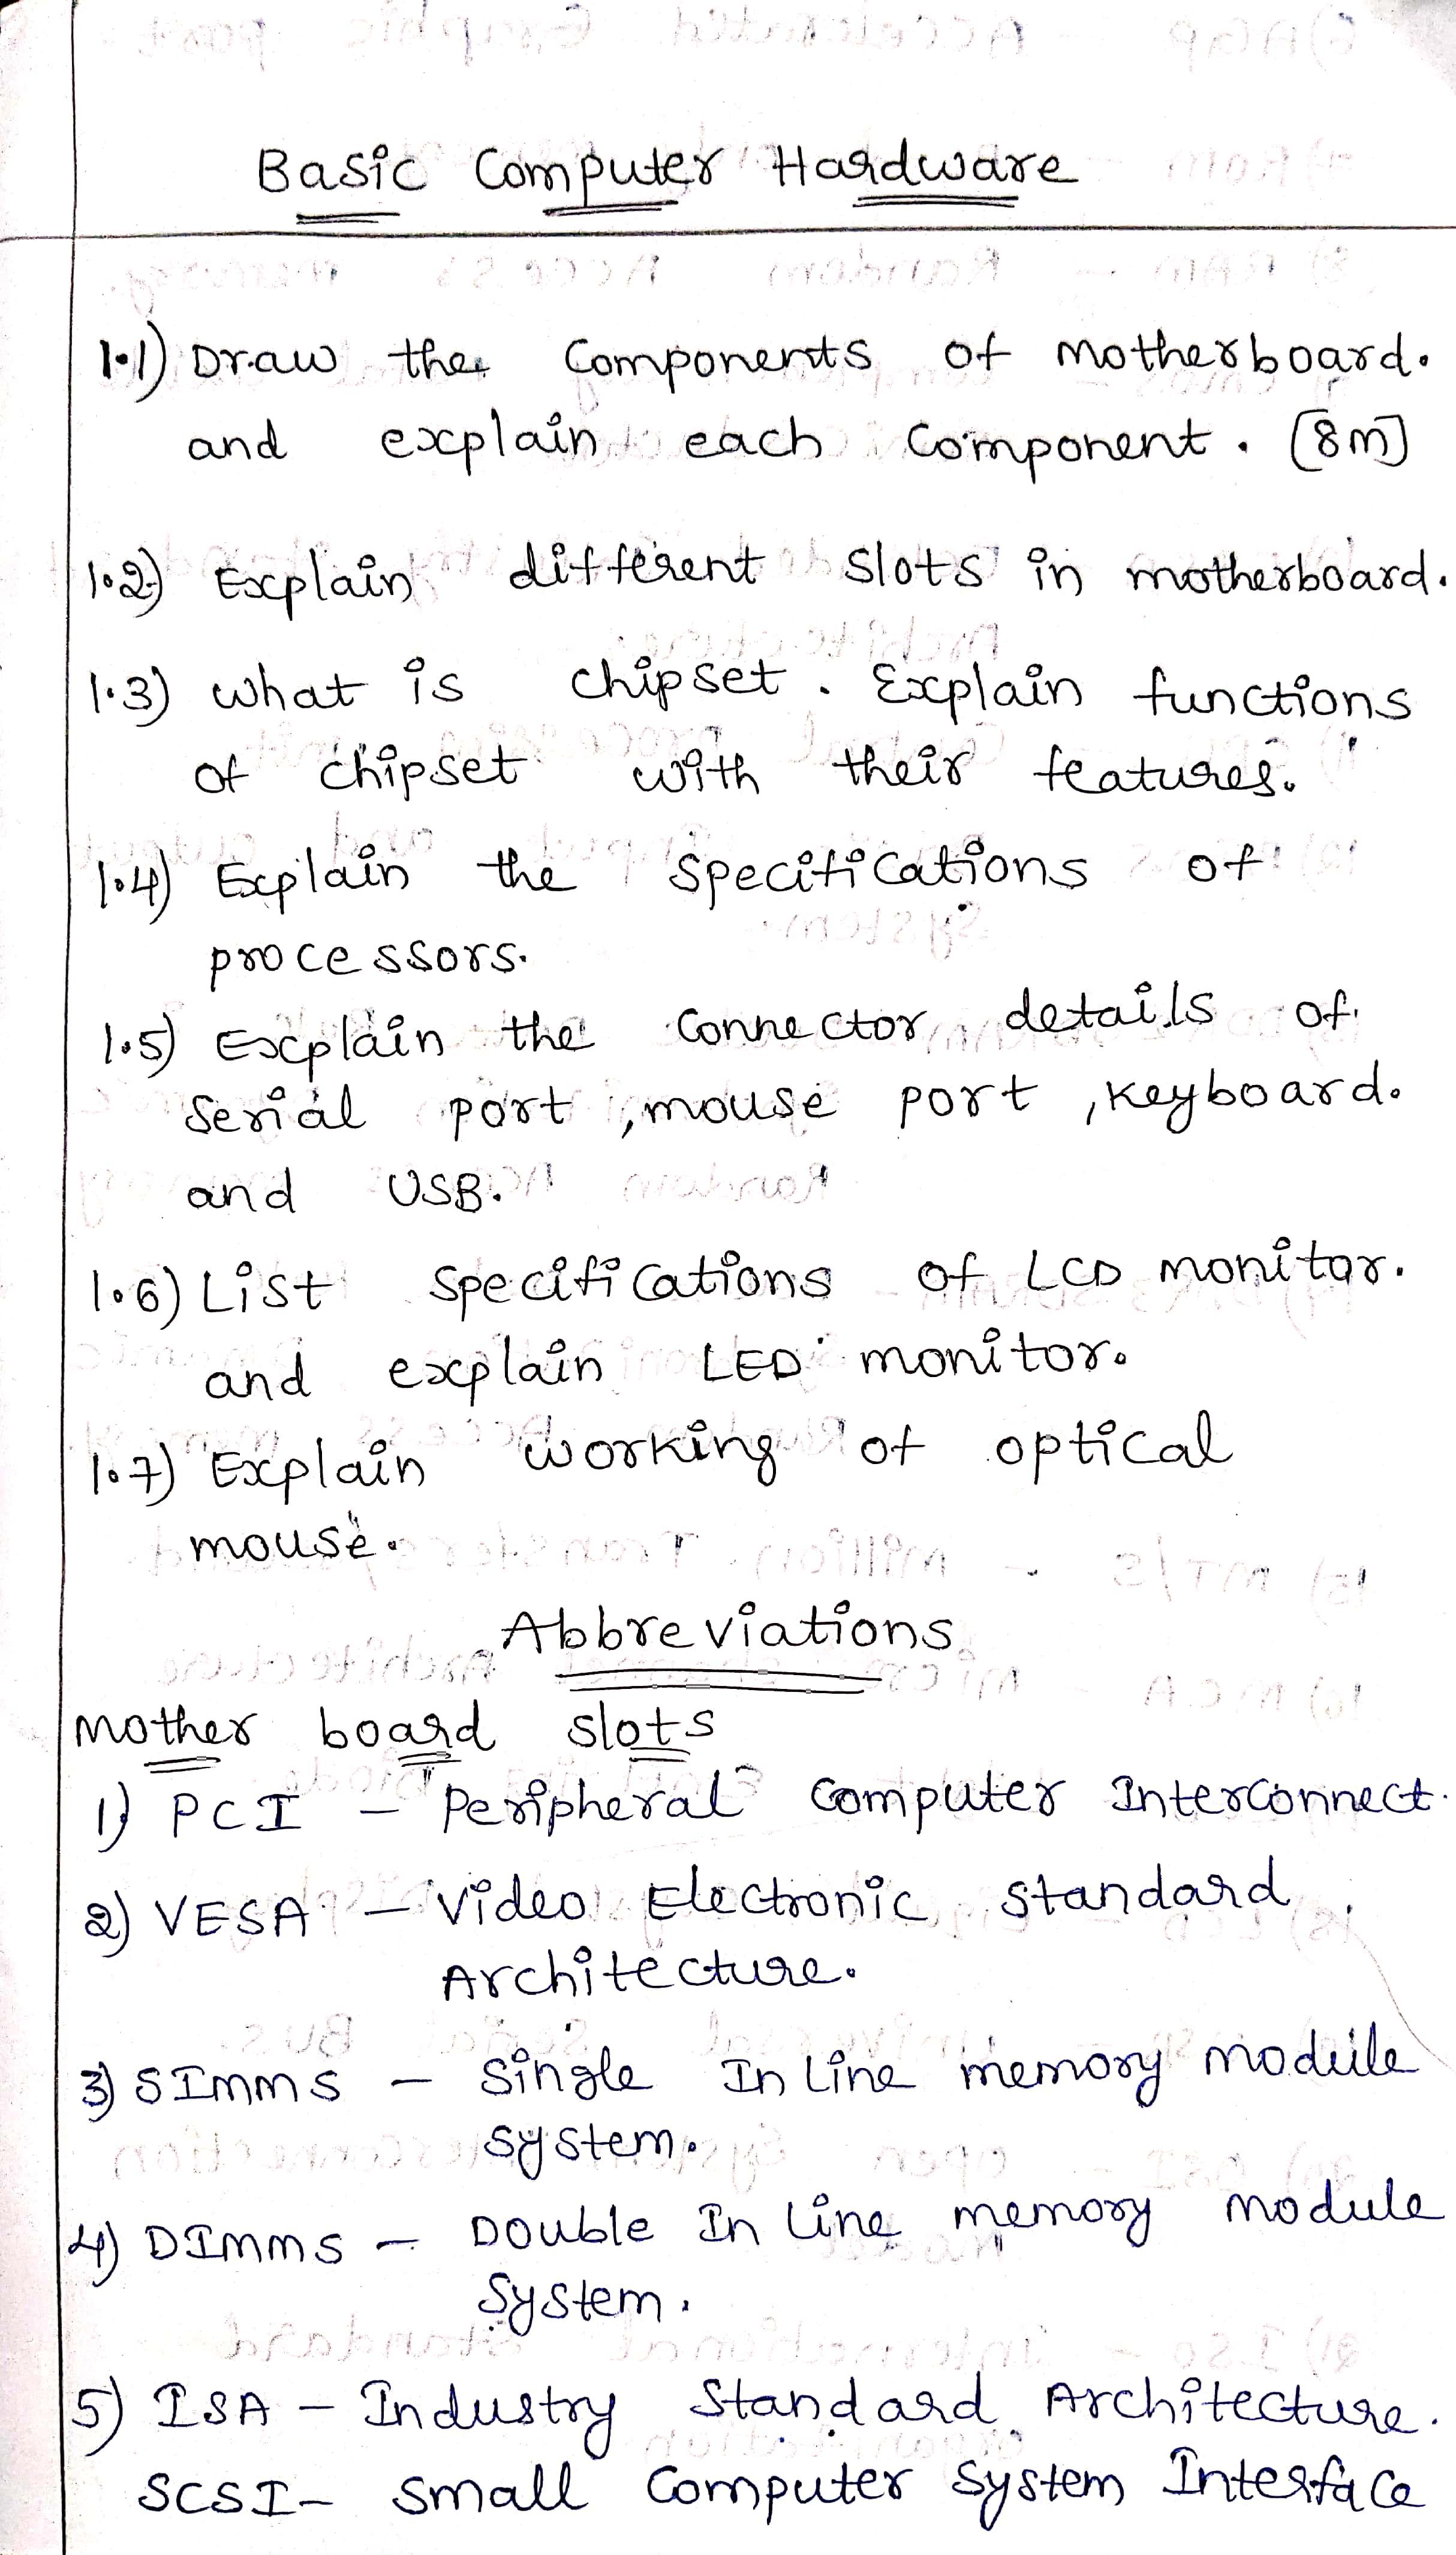 Basic Computer Hardware
1.1) Draw the Components of motherboard.
and explain each Component. [8m]
1.2) Explain different slots in motherboard.
1.3) what is chipset. Explain functions
of chipset with their features.
1.4) Explain the Specifications of
processors.
1.5) Explain the Connector details of
serial port, mouse port, keyboard.
and USB.
1.6) List Specifications of LCD monitor.
and explain LED monitor.
1.7) Explain working of optical
mouse.
Abbreviations
mother board slots
1) PCI - Peripheral Computer Interconnect.
2) VESA - Video Electronic Standard
Architecture.
3) SImms - Single In Line memory module
system.
4) DImms - Double In Line memory module
System.
5) ISA - Industry Standard Architecture.
SCSI - Small Computer System Interface